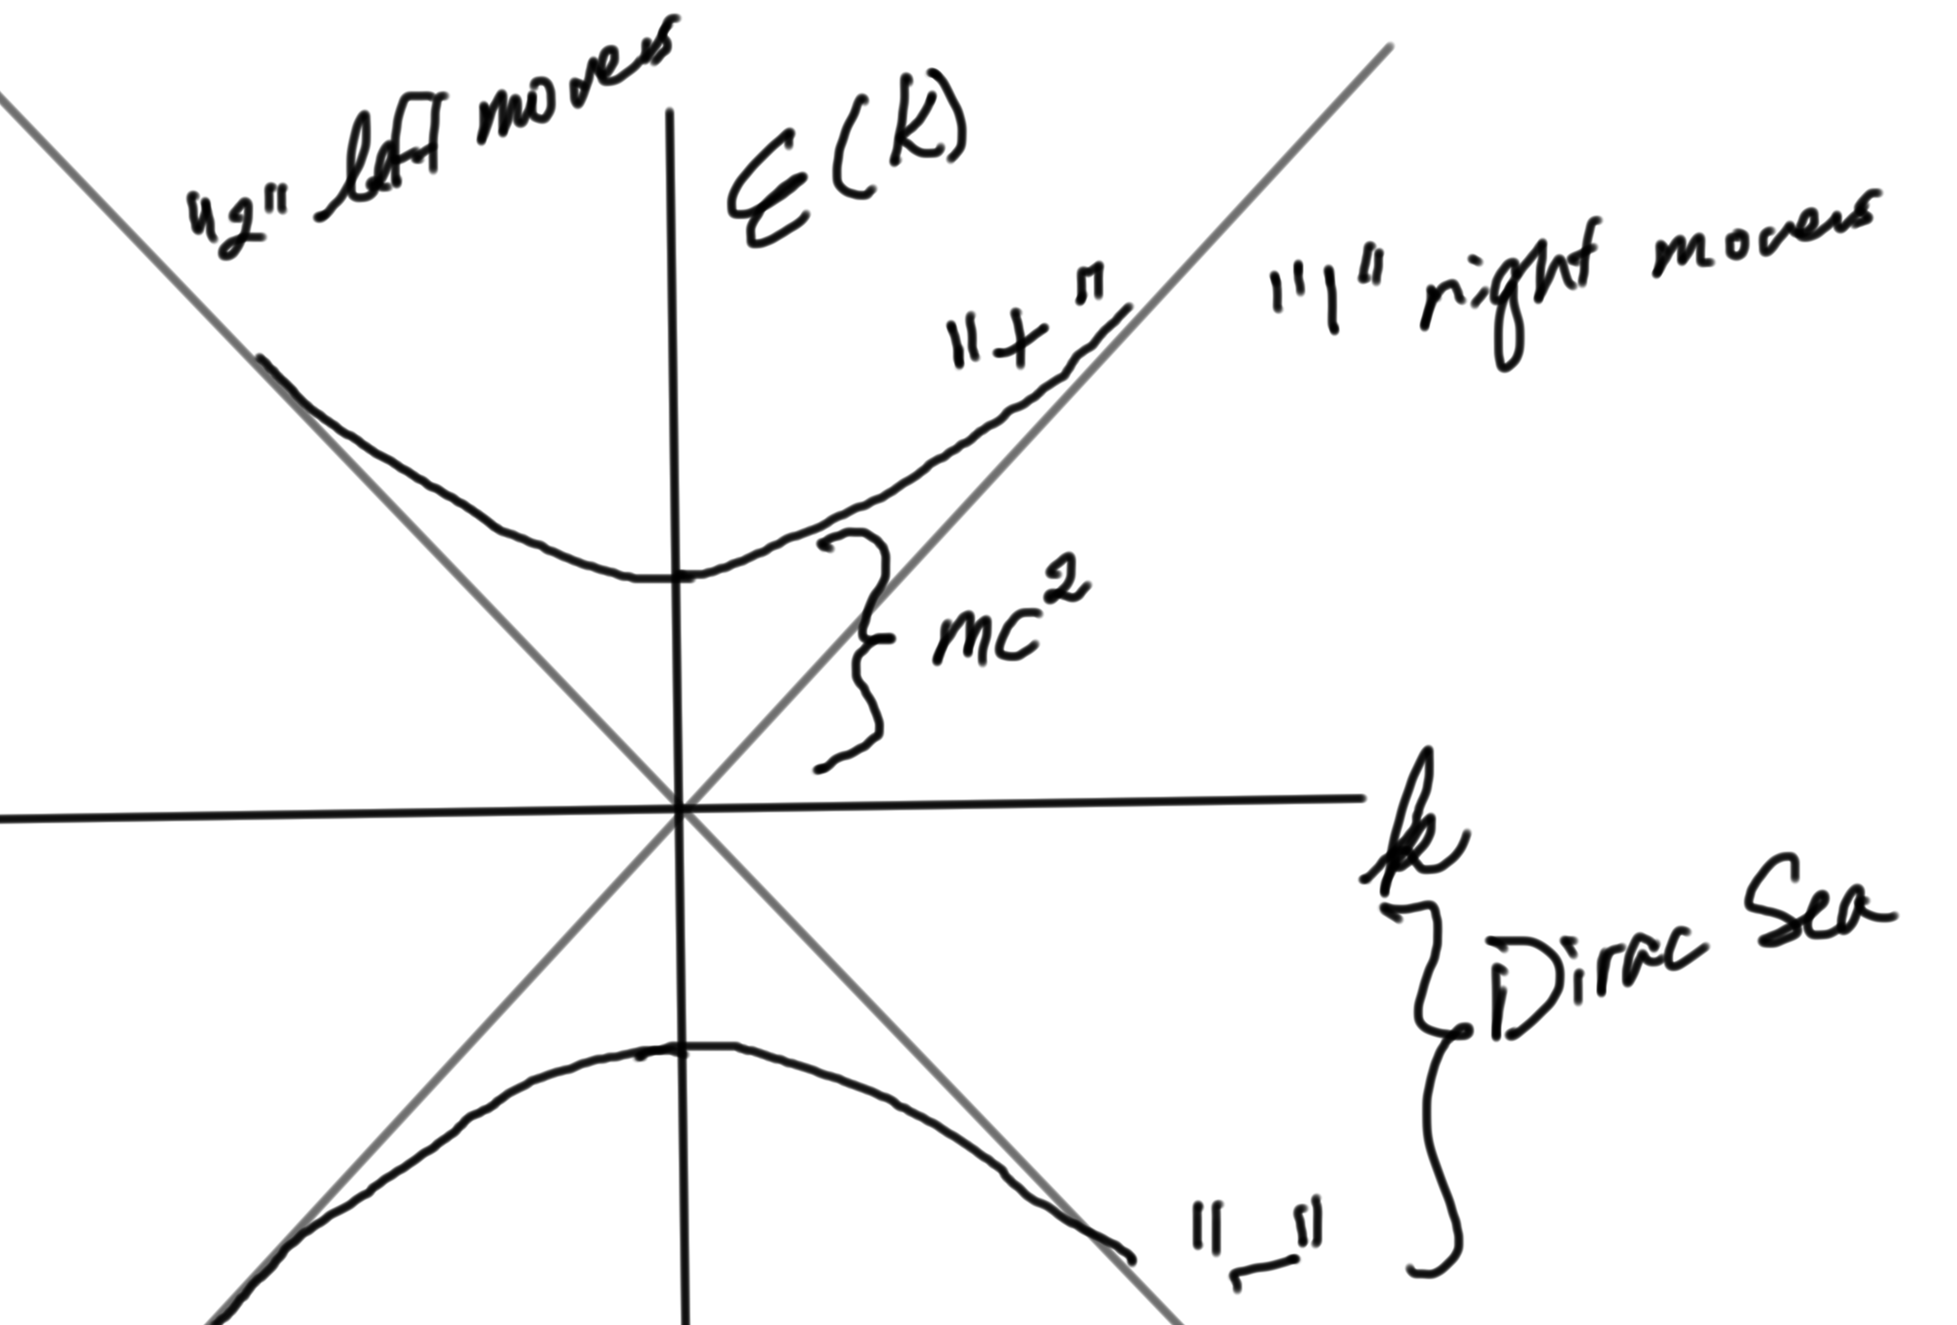 "2" left movers
E(k)
"+"
"1" right movers
mc²
k
Dirac Sea
"-"